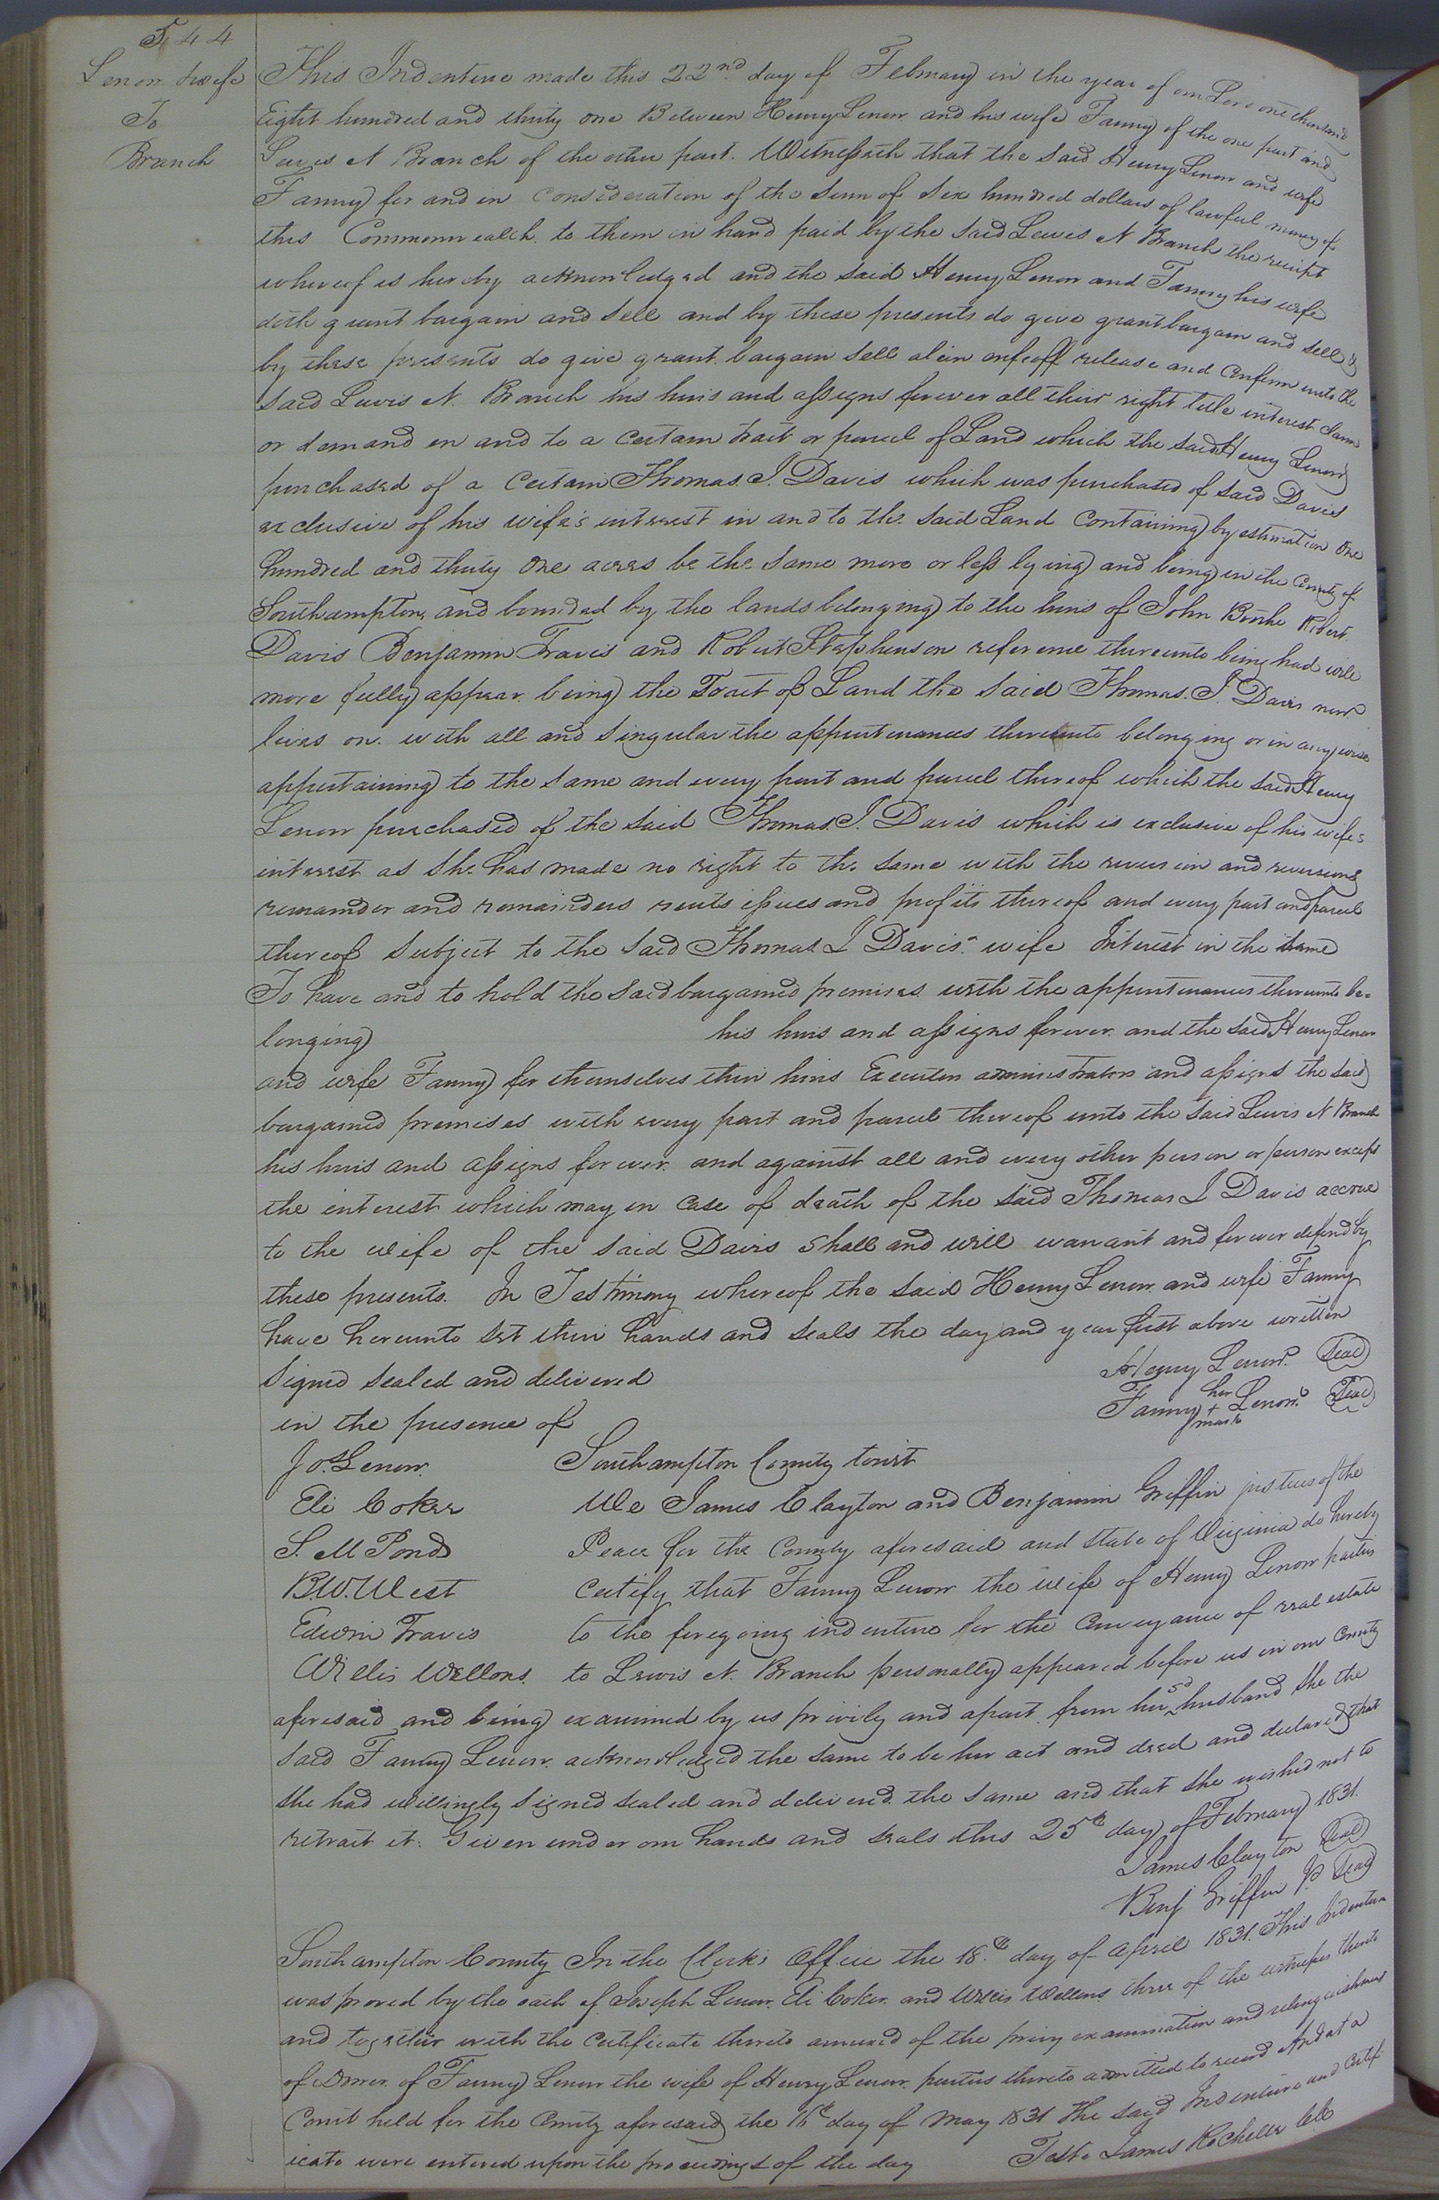 544
Lenow & wife
To
Branch
This Indenture made this 22nd day of February in the year of our Lord one thousand
Eight hundred and thirty one Between Henry Lenow and his wife Fanny of the one part and
Lewis N Branch of the other part. Witnesseth that the said Henry Lenow and wife
Fanny for and in consideration of the sum of six hundred dollars of lawful money of
this Commonwealth to them in hand paid by the said Lewis N Branch the receipt
whereof is hereby acknowledged and the said Henry Lenow and Fanny his wife
doth grant bargain and sell and by these presents do give grant bargain and sell &
by these presents do give grant bargain sell alein enfeoff release and confirm unto the
said Lewis N. Branch his heirs and assigns forever all their right title interest claim
or demand in and to a certain tract or parcel of Land which the said Henry Lenow
purchased of a certain Thomas. J. Davis which was purchased of said Davis
exclusive of his wife's interest in and to the said Land Containing by estimation one
hundred and thirty one acres be the same more or less lying and being in the County of
Southampton and bounded by the lands belonging to the heirs of John Barke Robert
Davis Benjamin Travis and Robert Stephenson reference thereunto being had will
more fully appear being the Tract of Land the said Thomas. J. Davis now
lives on with all and singular the appurtenances thereunto belonging or in any wise
appertaining to the same and every part and parcel thereof which the said Henry
Lenow purchased of the said Thomas. J. Davis which is exclusive of his wifes
interest as she has made no right to the same with the reversion and reversions
remainder and remainders rents issues and profits thereof and every part and parcel
thereof subject to the said Thomas J Davis' wife Interest in the same
To have and to hold the said bargained premises with the appurtenances thereunto be-
longing his heirs and assigns forever and the said Henry Lenow
and wife Fanny for themselves their heirs Executors administrators and assigns the said
bargained premises with every part and parcel thereof unto the said Lewis N Branch
his heirs and assigns forever and against all and every other person or person except
the interest which may in case of death of the said Thomas J Davis accrue
to the wife of the said Davis shall and will warrant and forever defend by
these presents. In Testimony whereof the said Henry Lenow and wife Fanny
have hereunto set their hands and seals the day and year first above written
Signed sealed and delivered
in the presence of
Henry Lenow. Seal
Fanny her + mark Lenow Seal
Jos. Lenow.
Eli Coker
S. M Pond
B.W. West
Edwin Travis
Willis Wellons.
Southampton County towit
We James Clayton and Benjamin Griffin justices of the
Peace for the County aforesaid and State of Virginia do hereby
certify that Fanny Lenow the wife of Henry Lenow parties
to the foregoing indenture for the conveyance of real estate
to Lewis N. Branch personally appeared before us in our County
aforesaid and being examined by us privily and apart from her sd husband she the
said Fanny Lenow acknowledged the same to be her act and deed and declared that
she had willingly signed sealed and delivered the same and that she wished not to
retract it. Given under our hands and seals this 25th day of February 1831.
James Clayton Seal
Benj Griffin Jr. Seal
Southampton County In the Clerk's Office the 18th day of April 1831. This Indenture
was proved by the oath of Joseph Lenow Eli Coker and Willis Wellons three of the witnesses thereto
and together with the certificate thereto annexed of the privy examination and relinquishment
of dower of Fanny Lenow the wife of Henry Lenow parties thereto admitted to record And at a
Court held for the County aforesaid the 16th day of May 1831 The said Indenture and certif-
icate were entered upon the proceedings of the day
Teste James Rochelle Clk